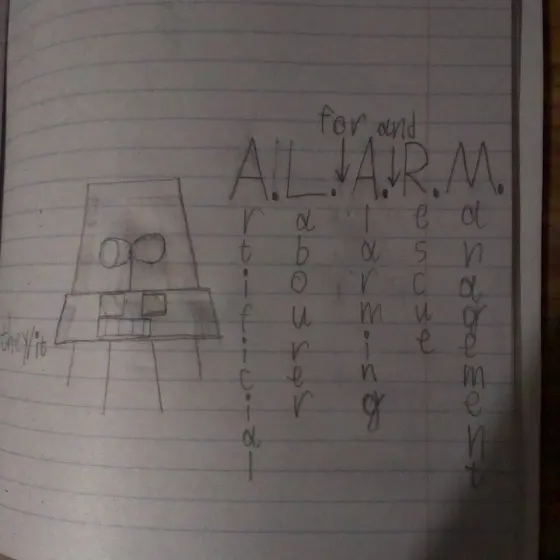 for and
A.L.A.R.M.
rtificial
abourer
larming
escue
anagement
they/it